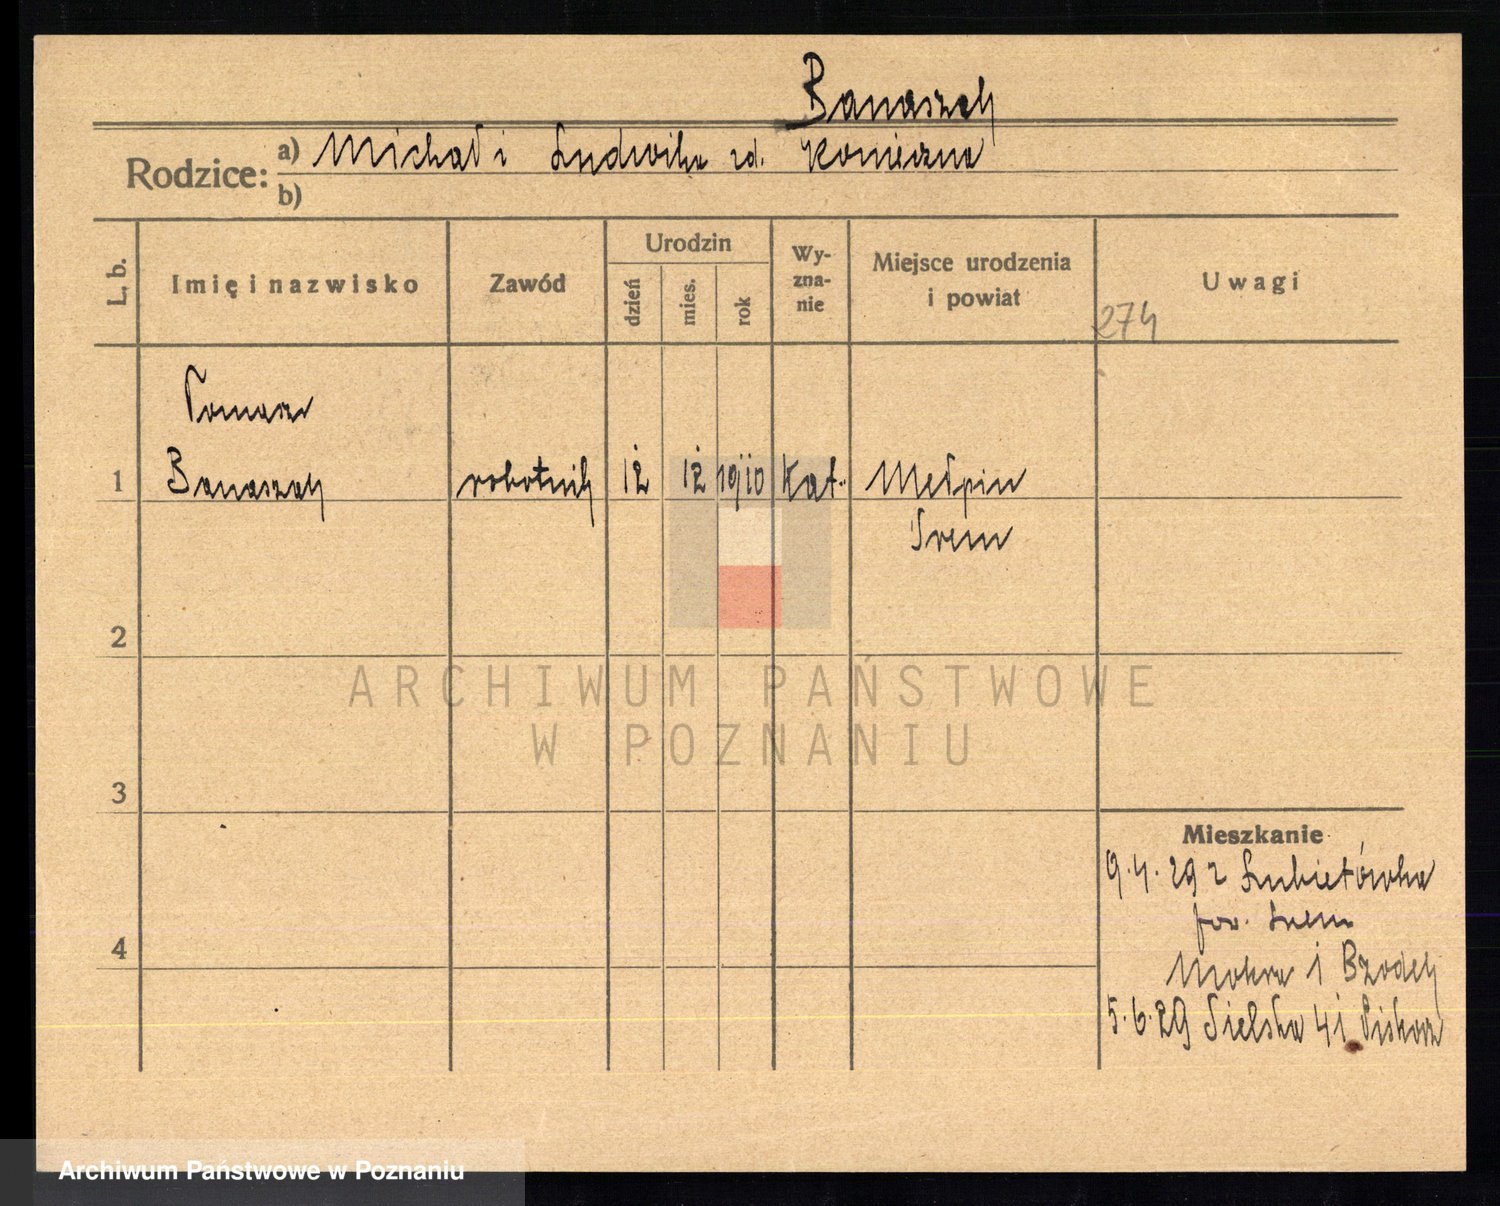 Banaszak
Rodzice: a) Michał i Ludwika zd. Konieczna
b)
L. b. Imię i nazwisko Zawód Urodzin dzień mies. rok Wy-zna-nie Miejsce urodzenia i powiat Uwagi
274
Tomasz
1 Banaszak robotnik 12 12 1910 kat. Mełpin
Śrem
2
ARCHIWUM PAŃSTWOWE
W POZNANIU
3
Mieszkanie
9.4.29 z Lubiatówka
pow. Śrem
4
Mokra 1
5.6.29 Sielska 41
Archiwum Państwowe w Poznaniu